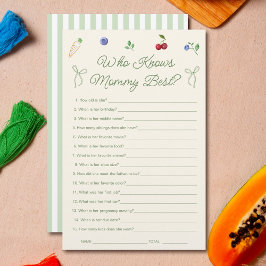 Who Knows
Mommy Best?
1. How old is she?
2. When is her birthday?
3. What is her middle name?
4. How many siblings does she have?
5. What is her favorite movie?
6. What is her favorite food?
7. What is her favorite animal?
8. What is her shoe size?
9. How did she meet the father to be?
10. What is her favorite color?
11. What was her first job?
12. What was her first car?
13. What is her pregnancy craving?
14. When is her due date?
15. How many kids does she want?
NAME TOTAL